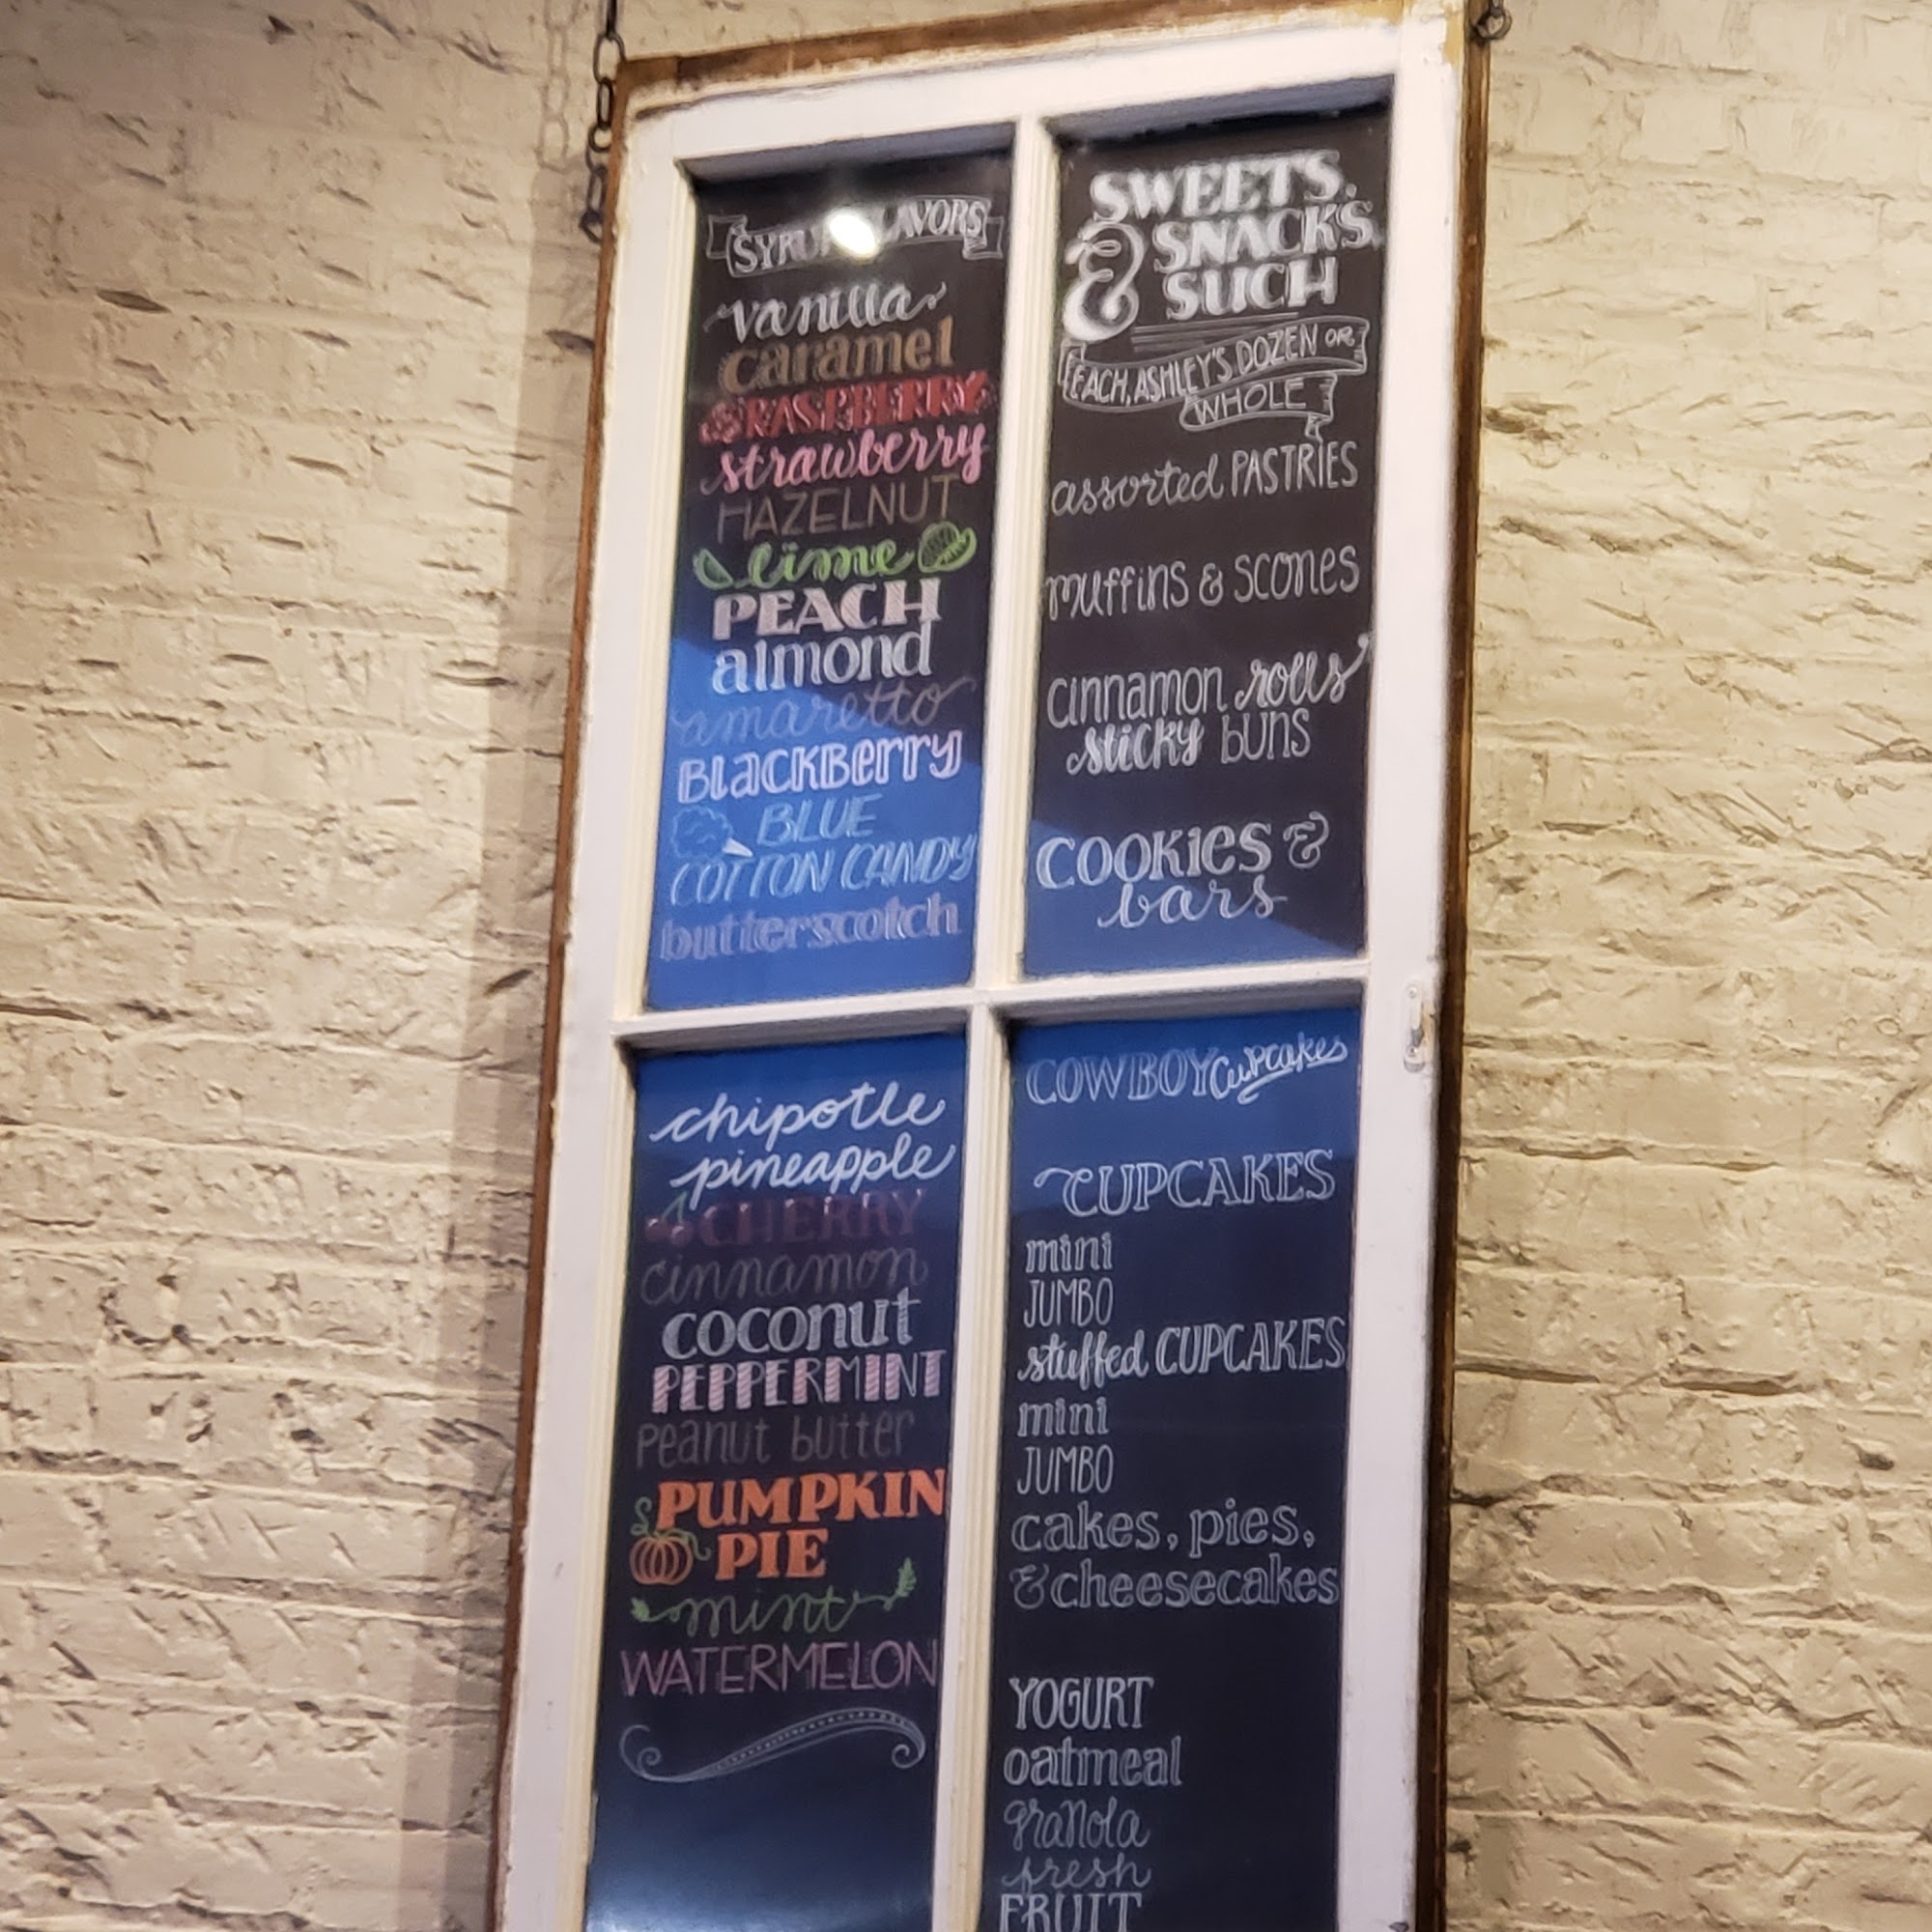 SYRUP FLAVORS
vanilla
caramel
RASPBERRY
strawberry
HAZELNUT
lime
PEACH
almond
amaretto
BLACKBerry
BLUE
COTTON CANDY
butterscotch
chipotle
pineapple
CHERRY
cinnamon
coconut
PEPPERMINT
peanut butter
PUMPKIN
PIE
mint
WATERMELON
SWEETS,
SNACKS,
& SUCH
EACH, ASHLEY'S DOZEN OR
WHOLE
assorted PASTRIES
muffins & SCONES
cinnamon rolls
sticky buns
COOKIES &
bars
COWBOY Cupcakes
CUPCAKES
mini
JUMBO
stuffed CUPCAKES
mini
JUMBO
cakes, pies,
& cheesecakes
YOGURT
oatmeal
granola
fresh
FRUIT